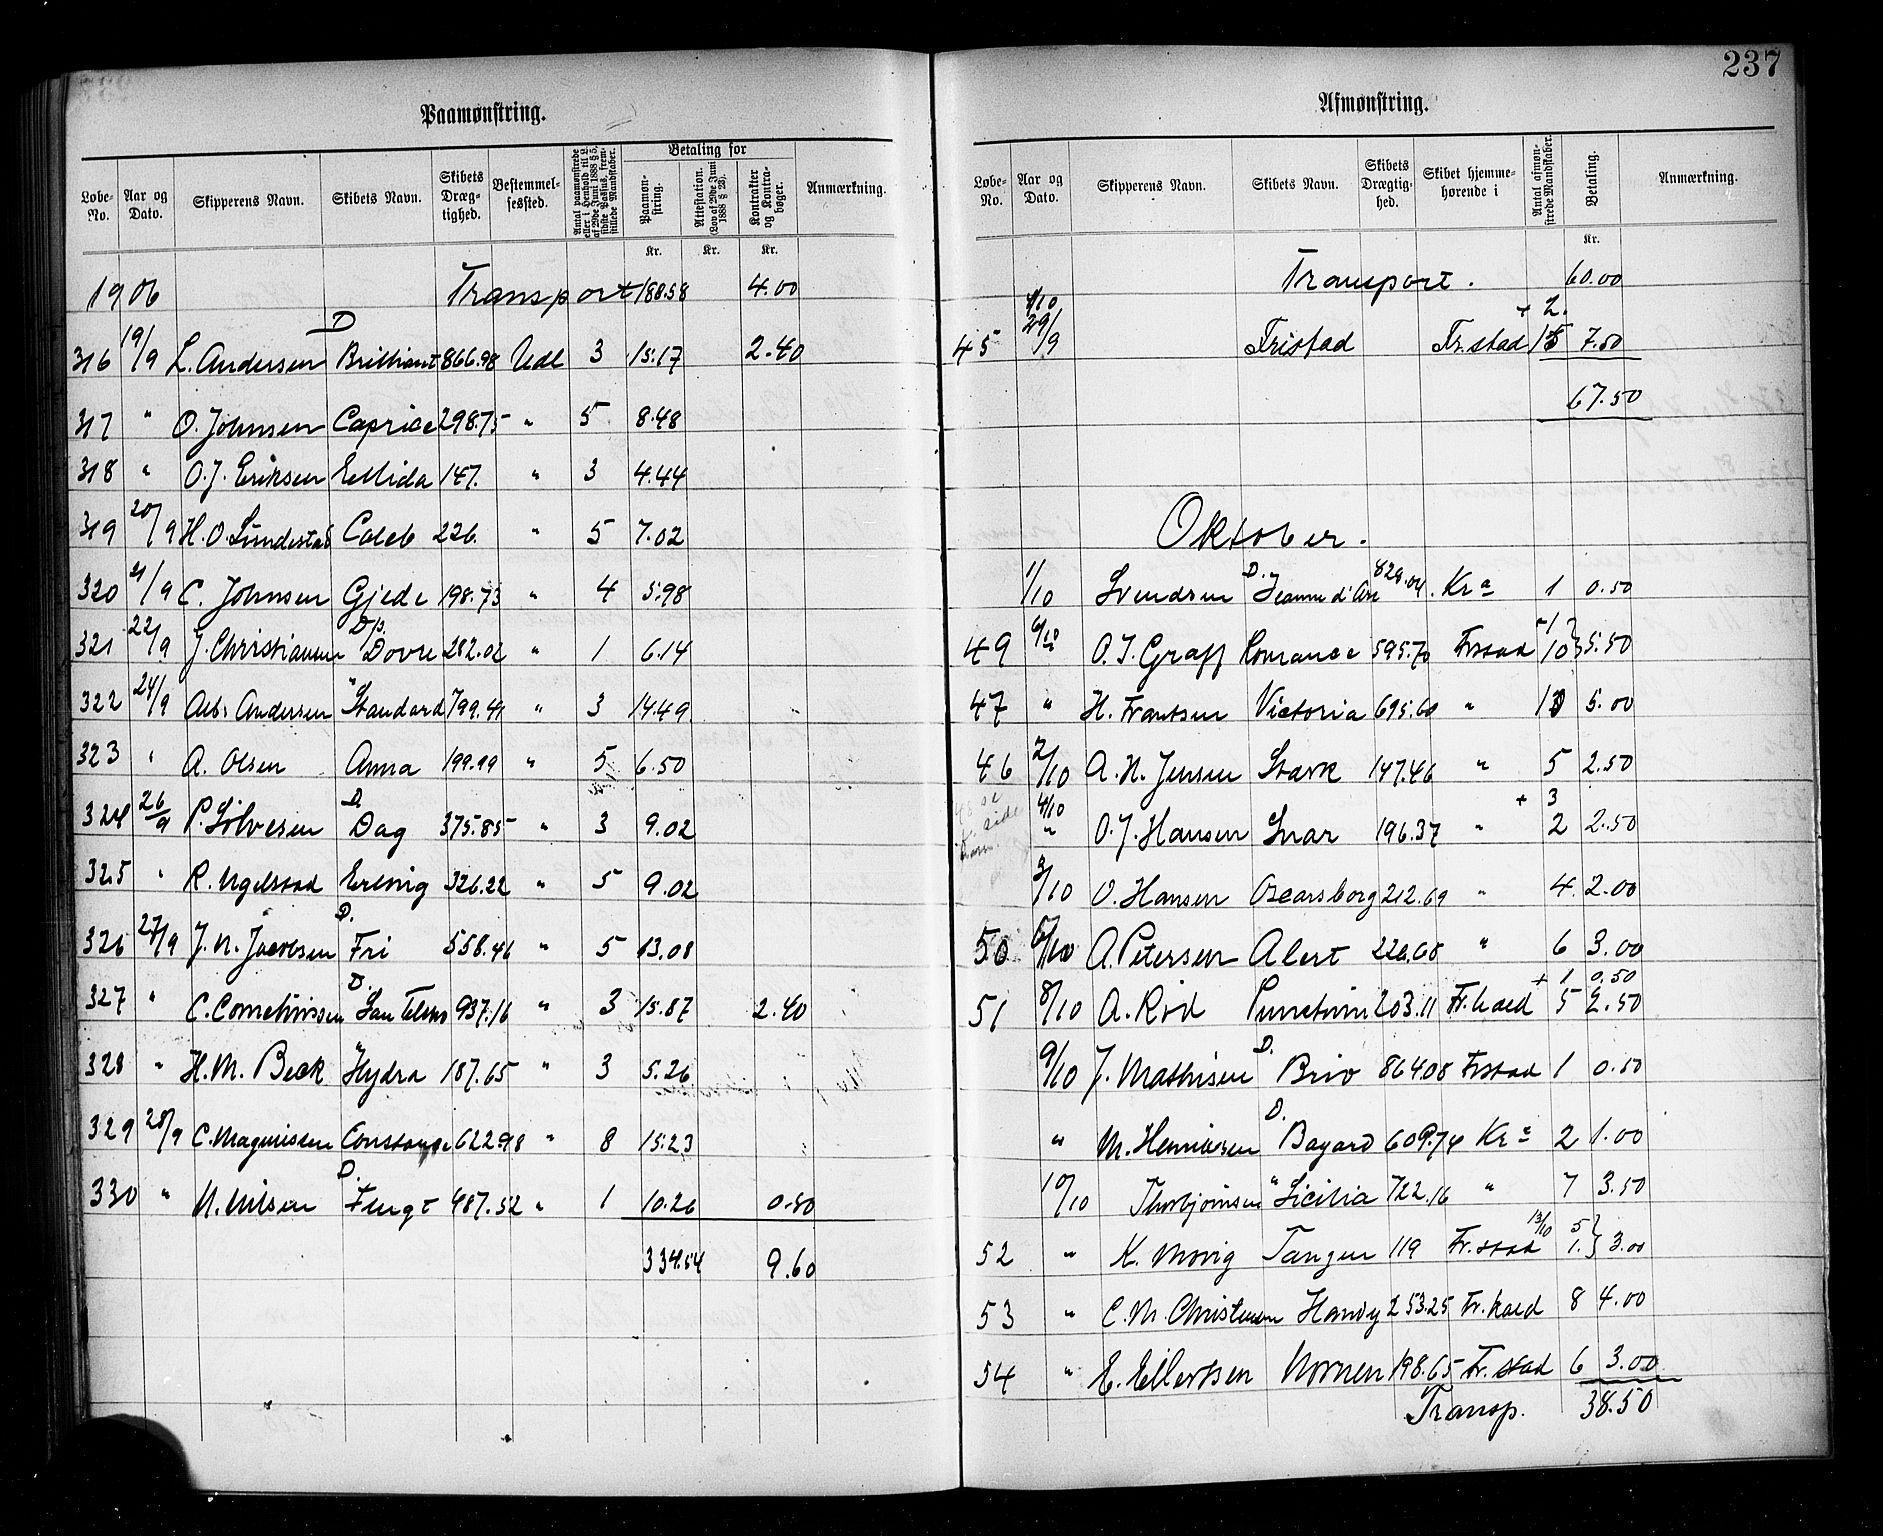 237
Paamønstring.
Løbe-No. | Aar og Dato. | Skipperens Navn. | Skibets Navn. | Skibets Dræg-tighed. | Bestemmel-sessted. | Antal paamønstrede eller i Henhold til L. af 29de Juni 1888 § 5, sidste Passus, frem-stillede Mandskaber. | Betaling for | Paamøn-string. | Attestation. (Lov af 29de Juni 1888 § 23). | Kontrakter og Kontra-bøger. | Anmærkning.
Kr. | Kr. | Kr.
1906 Transport 188.58 4.00
316 19/9 L. Andersen D Brilliant 866.98 Udl 3 15.17 2.40
317 " O. Johnsen Caprice 298.75 " 5 8.48
318 " O. J. Eriksen Ellida 147. " 3 4.44
319 20/9 H. O. Lundestad Caleb 226. " 5 7.02
320 21/9 C. Johnsen Gjede 198.73 " 4 5.98
321 22/9 J. Christiansen D/p. Dovre 282.02 " 1 6.14
322 24/9 Andersen " Standard 799.41 " 3 14.49
323 " A. Olsen Anna 199.99 " 5 6.50
324 26/9 P. Sølvesen D Dag 375.85 " 3 9.02
325 " R. Ugelstad Erling 326.22 " 5 9.02
326 27/9 J. N. Jacobsen D. Fri 558.46 " 5 13.08
327 " C. Corneliussen D. San Telmo 937.16 " 3 15.87 2.40
328 " H. M. Beck " Hydra 187.65 " 3 5.26
329 28/9 C. Magnussen Constance 622.98 " 8 15.23
330 " N. Nilsen D. 487.52 " 1 10.26 0.80
334.54 9.60
Afmønstring.
Løbe-No. | Aar og Dato. | Skipperens Navn. | Skibets Navn. | Skibets Drægtig-hed. | Skibet hjemme-hørende i | Antal afmøn-strede Mandskaber. | Betaling. | Anmærkning.
Kr.
Transport. 60.00
1/10 + 2.
45 29/9 Fristad Fr.stad 15 7.50
67.50
Oktober.
1/10 Svendsen D. Jeanne d'Arc 829.04 Kra 1 0.50
49 6/10 O. J. Graff Romance 595.70 Frstad 1 10 } 5.50
47 " H. Frantsen Victoria 695.60 " 10 5.00
46 2/10 A. N. Jensen Stærk 147.46 " 5 2.50
48 se side
4/10 + 3
" O. J. Hansen Snar 196.37 " 2 2.50
3/10 O. Hansen Oscarsborg 212.69 " 4 2.00
50 6/10 A. Petersen Alert 226.68 " 6 3.00
+ 1 0.50
51 8/10 A. Rød 203.11 Fr.hald 5 2.50
9/10 J. Mathisen D. Brio 864.08 Frstad 1 0.50
" M. Henriksen D. Bayard 609.74 Kra 2 1.00
10/10 Thorbjørnsen " Sicilia 722.16 " 7 3.50
52 " K. Movig Tangen 119 Fr.stad 13/10 5 1. } 3.00
53 " C. M. Christensen Handy 253.25 Fr.hald 8 4.00
54 " E. Eilertsen Nornen 198.65 Fr.stad 6 3.00
Transp. 38.50